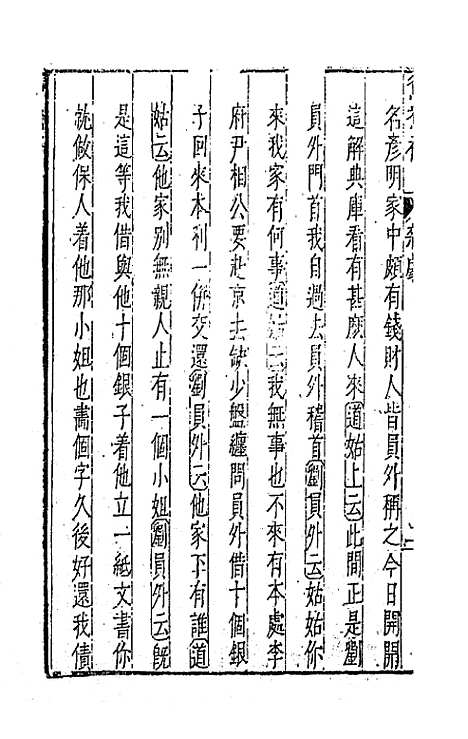 名彥明家中頗有錢財人皆員外稱之今日開開
這解典庫看有甚麽人來道姑上云此間正是劉
員外門首我自過去員外稽首劉員外云姑姑你
來我家有何事道姑云我無事也不來有本處李
府尹相公要赴京去缺少盤纏問員外借十個銀
子回來本利一併交還劉員外云他家下有誰道
姑云他家別無親人止有一個小姐劉員外云旣
是這等我借與他十個銀子着他立一紙文書你
就做保人着他那小姐也畵個字久後好還我債